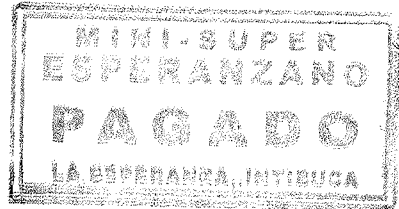 MINI-SUPER
ESPERANZANO
PAGADO
LA ESPERANZA, INTIBUCA